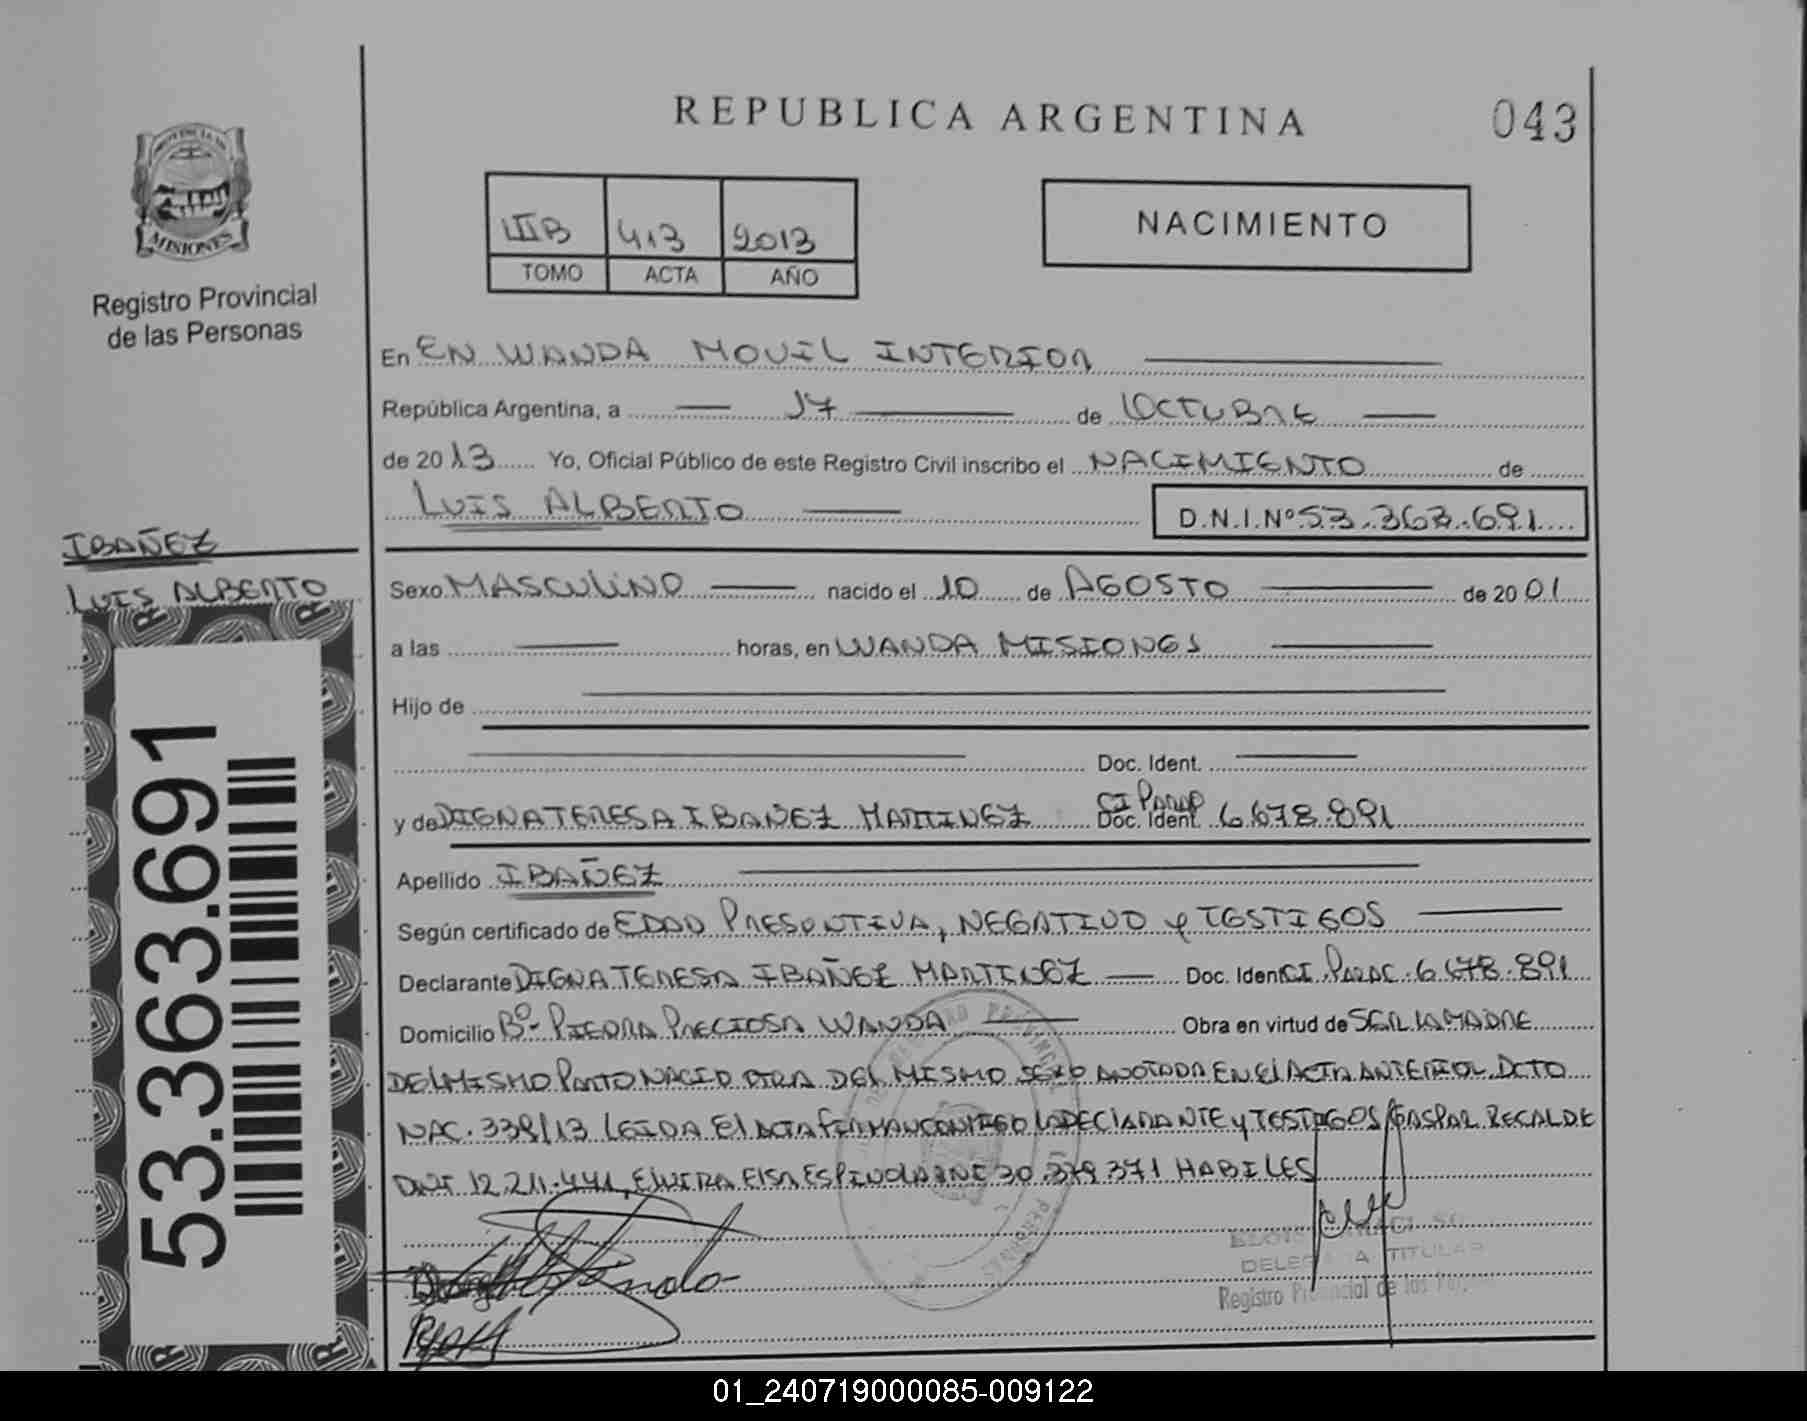 REPUBLICA ARGENTINA
043
PROVINCIA DE
MISIONES
Registro Provincial
de las Personas
IIIB 413 2013
TOMO ACTA AÑO
NACIMIENTO
En EN WANDA MOVIL INTERIOR
República Argentina, a 17 de OCTUBRE
de 2013 Yo, Oficial Público de este Registro Civil inscribo el NACIMIENTO de
LUIS ALBERTO D.N.I.Nº 53.363.691
IBAÑEZ
LUIS ALBERTO
Sexo MASCULINO nacido el 10 de AGOSTO de 2001
a las horas, en WANDA MISIONES
Hijo de
Doc. Ident.
y de DIGNA TERESA IBAÑEZ MARTINEZ CI PARAG Doc. Ident. 6.678.891
Apellido IBAÑEZ
Según certificado de EDAD PRESUNTIVA, NEGATIVO y TESTIGOS
Declarante DIGNA TERESA IBAÑEZ MARTINEZ Doc. Ident CI. PARAG. 6.678.891
Domicilio Bº- PIEDRA PRECIOSA WANDA Obra en virtud de SER LA MADRE
DEL MISMO PARTO NACIO OTRA DEL MISMO SEXO ANOTADA EN El ACTA ANTERIOR DCTO
NAC. 339/13 LEIDA El ACTA FIRMAN CONMIGO LA DECLARANTE y TESTIGOS GASPAR RECALDE
DNI 12.211.441, ELVIRA ELSA ESPINOLA DNI 30.379.371 HABILES
DELEG A TITULAR
Registro Provincial de las Per.
53.363.691
01_240719000085-009122